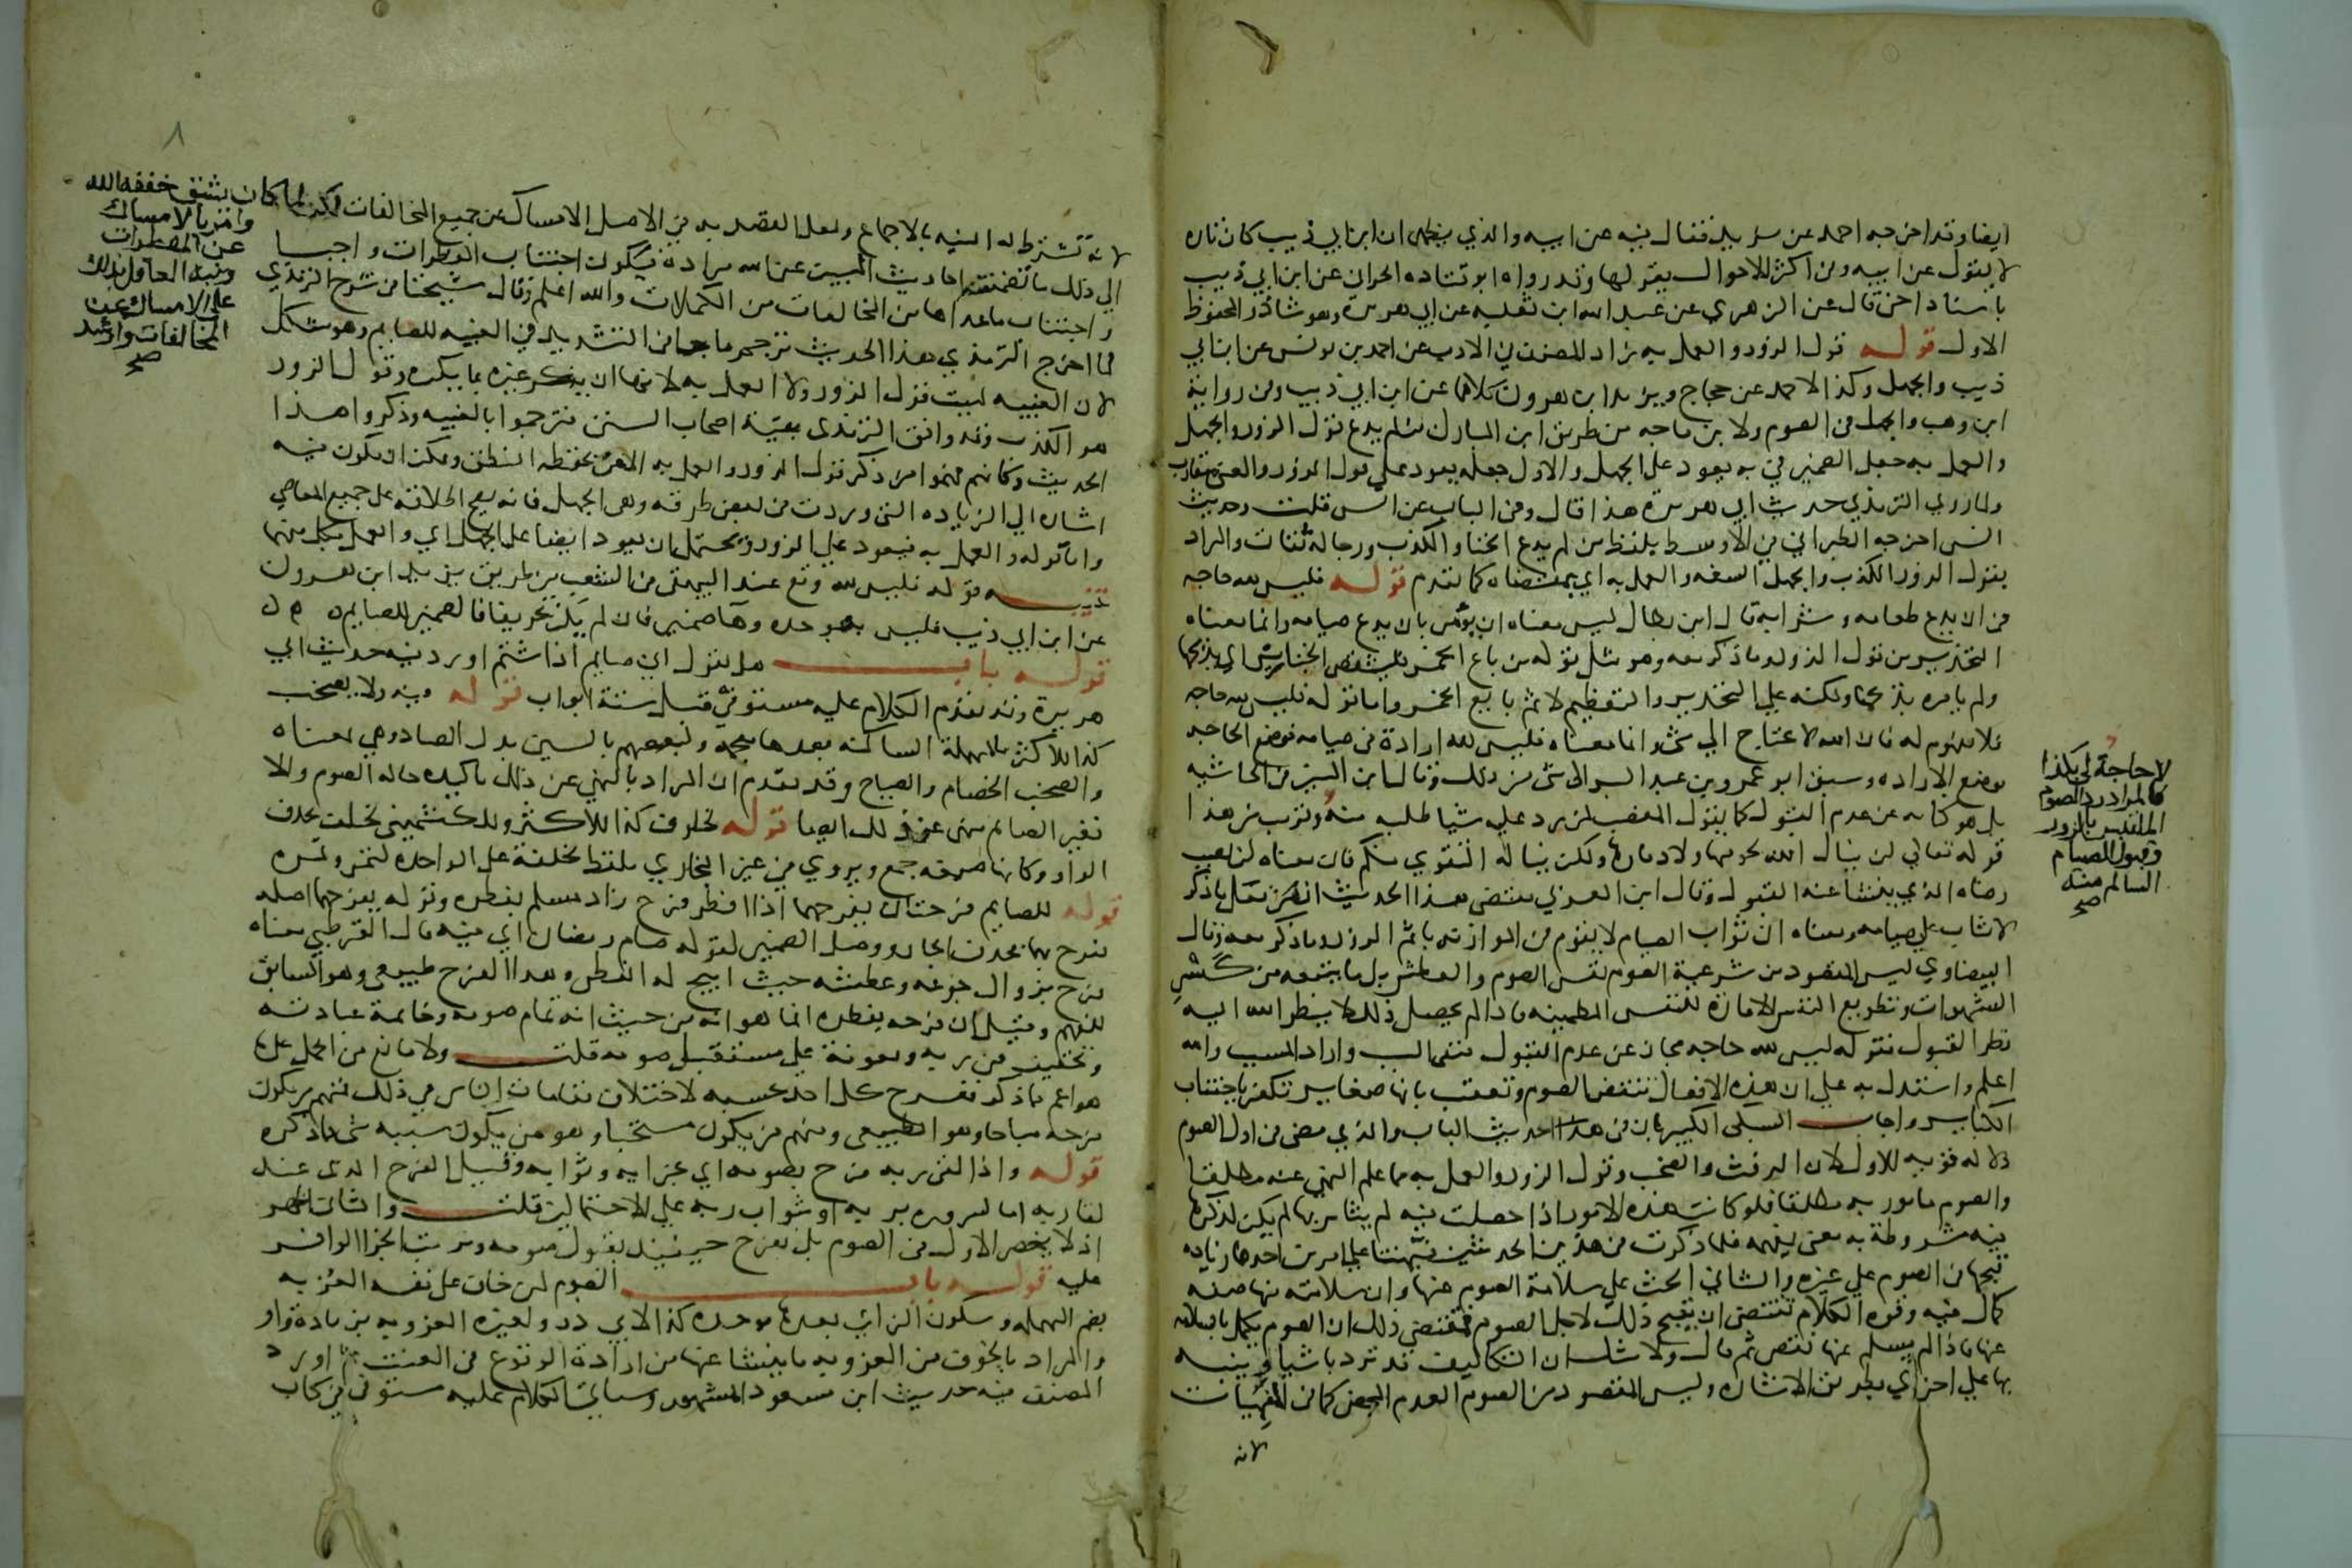 ايضا وقد اخرجه احمد عن يزيد فقال فيه عن ابيه والذي يظهر ان ابن ابي ذيب كان تاره
لا يقول عن ابيه وفي اكثر الاحوال يقولها وقد رواه ابو قتاده الحراني عن ابن ابي ذيب
باسناد اخر قال عن الزهري عن عبد الله ابن ثعلبه عن ابي هريرة وهو شاذ والمحفوظ
الاول قوله قول الزور والعمل به زاد المصنف في الادب عن احمد بن يونس عن ابن ابي
ذيب والجهل وكذا لاحمد عن حجاج ويزيد ابن هرون كلاهما عن ابن ابي ذيب وفي رواية
ابن وهب والجهل في الصوم ولابن ماجه من طريق ابن المبارك من لم يدع قول الزور والجهل
والعمل به جعل الضمير في به يعود على الجهل والاول جعله يعود على قول الزور والمعنى متقارب
ولما روى الترمذي حديث ابي هريرة هذا قال وفي الباب عن انس قلت وحديث
انس اخرجه الطبراني في الاوسط بلفظ من لم يدع الخنا والكذب ورجاله ثقات والمراد
بقول الزور الكذب والجهل السفه والعمل به اي بمقتضاه كما تقدم قوله فليس لله حاجه
في ان يدع طعامه وشرابه قال ابن بطال ليس معناه ان يؤمر بان يدع صيامه وانما معناه
التحذير من قول الزور وما ذكر معه وهو مثل قوله من باع الخمر فليشقص الخنازير اي يذبحها
ولم يامره بذبحها ولكنه على التحذير والتعظيم لاثم بايع الخمر واما قوله فليس لله حاجه
فلا مفهوم له فان الله لا يحتاج الى شي وانما معناه فليس لله ارادة في صيامه فوضع الحاجه
موضع الاراده وسبق ابو عمرو بن عبد البر الى شي من ذلك وقال ابن المنير في الحاشيه
بل هو كنايه عن عدم القبول كما يقول المغضب لمن رد عليه شيا طلبه منه وقريب من هذا
قوله تعالى لن ينال الله لحومها ولا دماؤها ولكن يناله التقوى منكم فان معناه لن يصيب
رضاه الذي ينشا عنه القبول وقال ابن العربي مقتضى هذا الحديث ان من فعل ما ذكر
لا يثاب على صيامه ومعناه ان ثواب الصيام لا يقوم في الموازنه باثم الزور وما ذكر معه وقال
البيضاوي ليس المقصود من شرعية الصوم نفس الصوم والعطش بل ما يتبعه من كسر
الشهوات وتطويع النفس الامارة للنفس المطمينه فاذا لم يحصل ذلك لا ينظر الله اليه
نظر القبول فقوله ليس لله حاجه مجاز عن عدم القبول فنفى السبب واراد المسبب والله
اعلم واستدل به على ان هذه الافعال تنقص الصوم وتعقب بانها صغاير تكفر باجتناب
الكباير واجاب السبكي الكبير بان في هذا حديث الباب والذي مضى في اول الصوم
دلاله قويه للاول لان الرفث والصخب وقول الزور والعمل به مما علم النهي عنه مطلقا
والصوم مامور به مطلقا فلو كانت هذه الامور اذا حصلت فيه لم يتاثر بها لم يكن لذكرها
فيه مشروطة به معنى يفهمه فلما ذكرت في هذين الحديثين نبهتنا على امرين احدهما زياده
قبحها في الصوم على غيره والثاني الحث على سلامة الصوم عنها وان سلامته منها صفه
كمال فيه وقوة الكلام تقتضي ان يقبح ذلك لاجل الصوم فمقتضى ذلك ان الصوم يكمل بالسلامه
عنها فاذا لم يسلم عنها نقص ثم قال ولا شك ان التكاليف قد ترد باشيا وينبه
بها على اخرى بطريق الاشاره وليس المقصود من الصوم العدم المحض كما في المنهيات
لانه
لا حاجة لي بكذا
فالمراد رد الصوم
المتلبس بالزور
وقبول الصيام
السالم منه
صح
٨
لانه تشترط له النيه بالاجماع ولعل القصد به في الاصل الامساك عن جميع المخالفات لكن لما كان يشق خففه الله
وامر بالامساك
عن المفطرات
ونبه العاقل بذلك
على الامساك عن
المخالفات وارشد
صح
الى ذلك ما تضمنته احاديث المبين عن الله مراده فيكون اجتناب المفطرات واجبا
واجتناب ما عداها من المخالفات من المكملات والله اعلم وقال شيخنا في شرح الترمذي
لما اخرج الترمذي هذا الحديث ترجم ما جا في التشديد في الغيبه للصايم وهو مشكل
لان الغيبه ليست قول الزور ولا العمل به لانها ان يذكر غيره بما يكره وقول الزور
هو الكذب وقد وافق الترمذي بقية اصحاب السنن فترجموا بالغيبه وذكروا هذا
الحديث وكانهم فهموا من ذكر قول الزور والعمل به الامر بحفظ النطق ويمكن ان يكون فيه
اشاره الى الزياده التي وردت في بعض طرقه وهي الجهل فانه يصح اطلاقه على جميع المعاصي
واما قوله والعمل به فيعود على الزور ويحتمل ان يعود ايضا على الجهل اي والعمل بكل منهما
تنبيه قوله فليس لله وقع عند البيهقي في الشعب من طريق يزيد ابن هرون
عن ابن ابي ذيب فليس به بموحده وها ضمير فان لم يكن تحريفا فالضمير للصايم
قوله باب هل يقول اني صايم اذا شتم اورد فيه حديث ابي
هريرة وقد تقدم الكلام عليه مستوفى قبل ستة ابواب قوله فيه ولا يصخب
كذا للاكثر بالمهملة الساكنه بعدها معجمه ولبعضهم بالسين بدل الصاد وهي بمعناه
والصخب الخصام والصياح وقد تقدم ان المراد بالنهي عن ذلك تاكيده حاله الصوم والا
فغير الصايم منهي عن ذلك ايضا قوله لخلوف كذا للاكثر وللكشميهني لخلف بحذف
الواو وكانها صيغه جمع ويروى في غير البخاري بلفظ لخلفة على الواحده كتمر وتمره
قوله للصايم فرحتان يفرحهما اذا افطر فرح زاد مسلم بفطره وقوله يفرحهما اصله
يفرح بهما فحذف الجار ووصل الضمير كقوله صام رمضان اي فيه قال القرطبي معناه
فرح بزوال جوعه وعطشه حيث ابيح له الفطر وهذا الفرح طبيعي وهو السابق
للفهم وقيل ان فرحه بفطره انما هو انه من حيث انه تمام صومه وخاتمة عبادته
وتخفيف من ربه ومعونة على مستقبل صومه قلت ولا مانع من الحمل على ما
هو اعم مما ذكر ففرح كل احد بحسبه لاختلاف مقامات الناس في ذلك فمنهم من يكون
فرحه مباحا وهو الطبيعي ومنهم من يكون مستحبا وهو من يكون سببه شي مما ذكره
قوله واذا لقي ربه فرح بصومه اي بجزايه وثوابه وقيل الفرح الذي عند
لقا ربه اما لسروره بربه او بثواب ربه على الاحتمالين قلت والثاني اظهر
اذ لا ينحصر الاول في الصوم بل يفرح حينيذ بقبول صومه وترتب الجزا الوافر
عليه قوله باب الصوم لمن خاف على نفسه العزبه
بضم المهمله وسكون الزاي بعدها موحده كذا لابي ذر ولغيره العزوبه بزيادة واو
والمراد بالخوف من العزوبه ما ينشا عنها من ارادة الوقوع في العنت ثم اورد
المصنف فيه حديث ابن مسعود المشهور وسياتي الكلام عليه مستوفى في كتاب